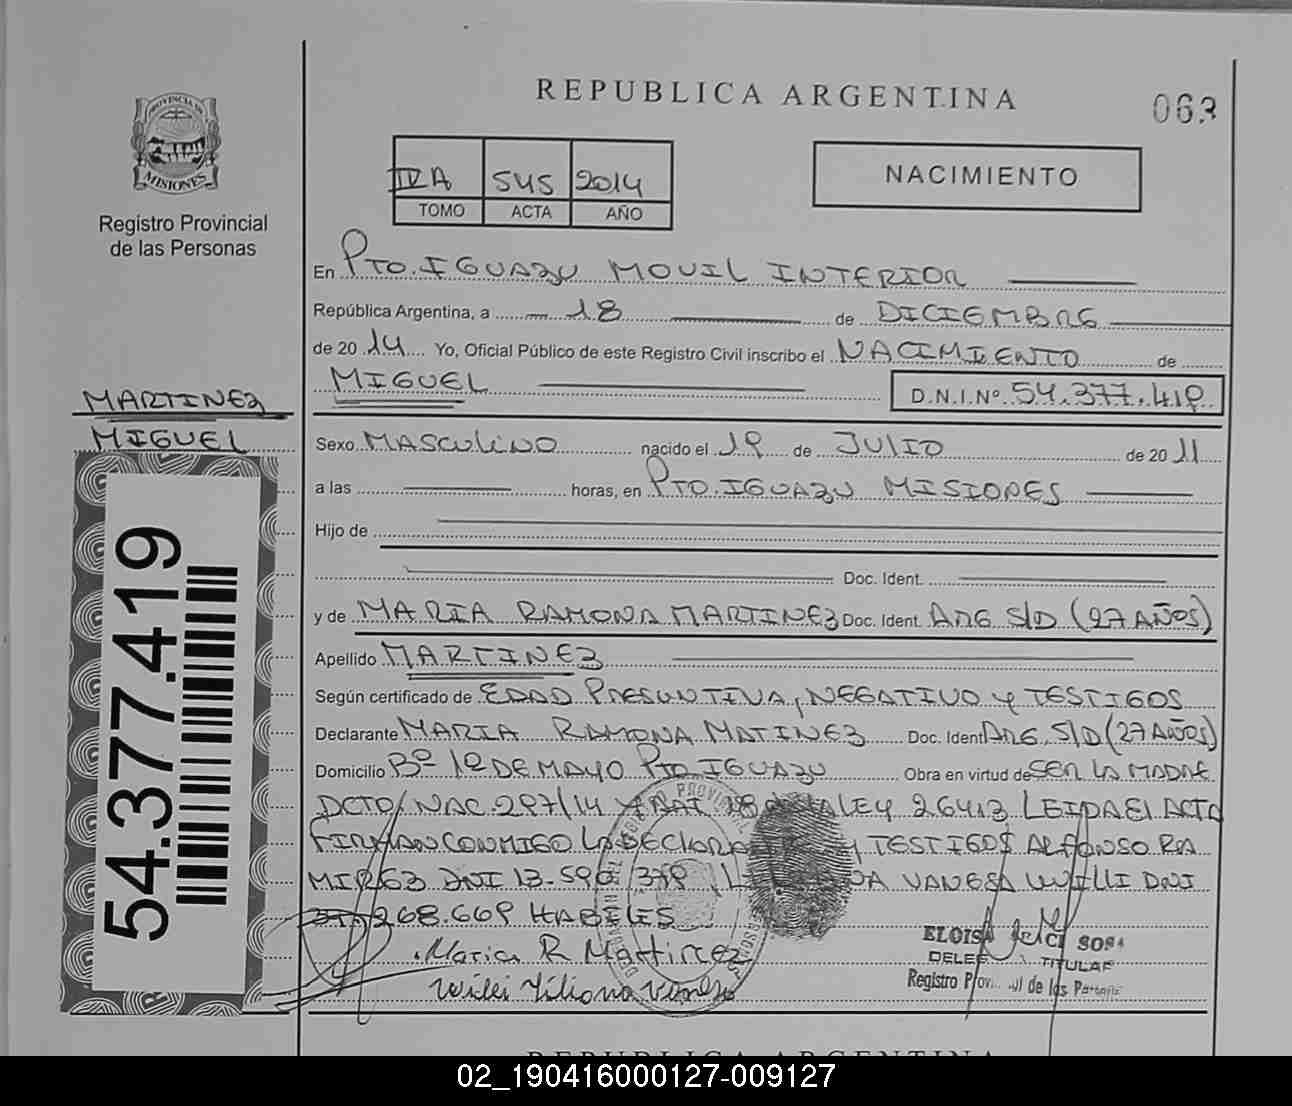 REPUBLICA ARGENTINA
063
PROVINCIA DE
MISIONES
Registro Provincial
de las Personas
IVA 545 2014
TOMO ACTA AÑO
NACIMIENTO
En PTO. IGUAZU MOVIL INTERIOR
República Argentina, a 18 de DICIEMBRE
de 2014 Yo, Oficial Público de este Registro Civil inscribo el NACIMIENTO de
MIGUEL D.N.I.Nº 54.377.419
MARTINEZ
MIGUEL
Sexo MASCULINO nacido el 19 de JULIO de 2011
a las horas, en PTO. IGUAZU MISIONES
Hijo de
Doc. Ident.
y de MARIA RAMONA MARTINEZ Doc. Ident. ARG S/D (27 AÑOS)
Apellido MARTINEZ
Según certificado de EDAD PRESUNTIVA, NEGATIVO y TESTIGOS
Declarante MARIA RAMONA MATINEZ Doc. Ident ARG. S/D (27 AÑOS)
Domicilio Bº 1º DE MAYO PTO IGUAZU Obra en virtud de SER LA MADRE
DCTO. NAC. 297/14 Y ART 28 LEY 26413 LEIDA EL ACTA
FIRMAN CONMIGO LA DECLARANTE Y TESTIGOS ALFONSO RA
MIREZ DNI 13.590.379 VANESA WILLI DNI
268.669 HABILES
Maria R Martinez
Willi Liliana Vanesa
ELOISA SOSA
DELEG TITULAR
Registro Prov. de las Personas
54.377.419
REPUBLICA ARGENTINA
02_190416000127-009127